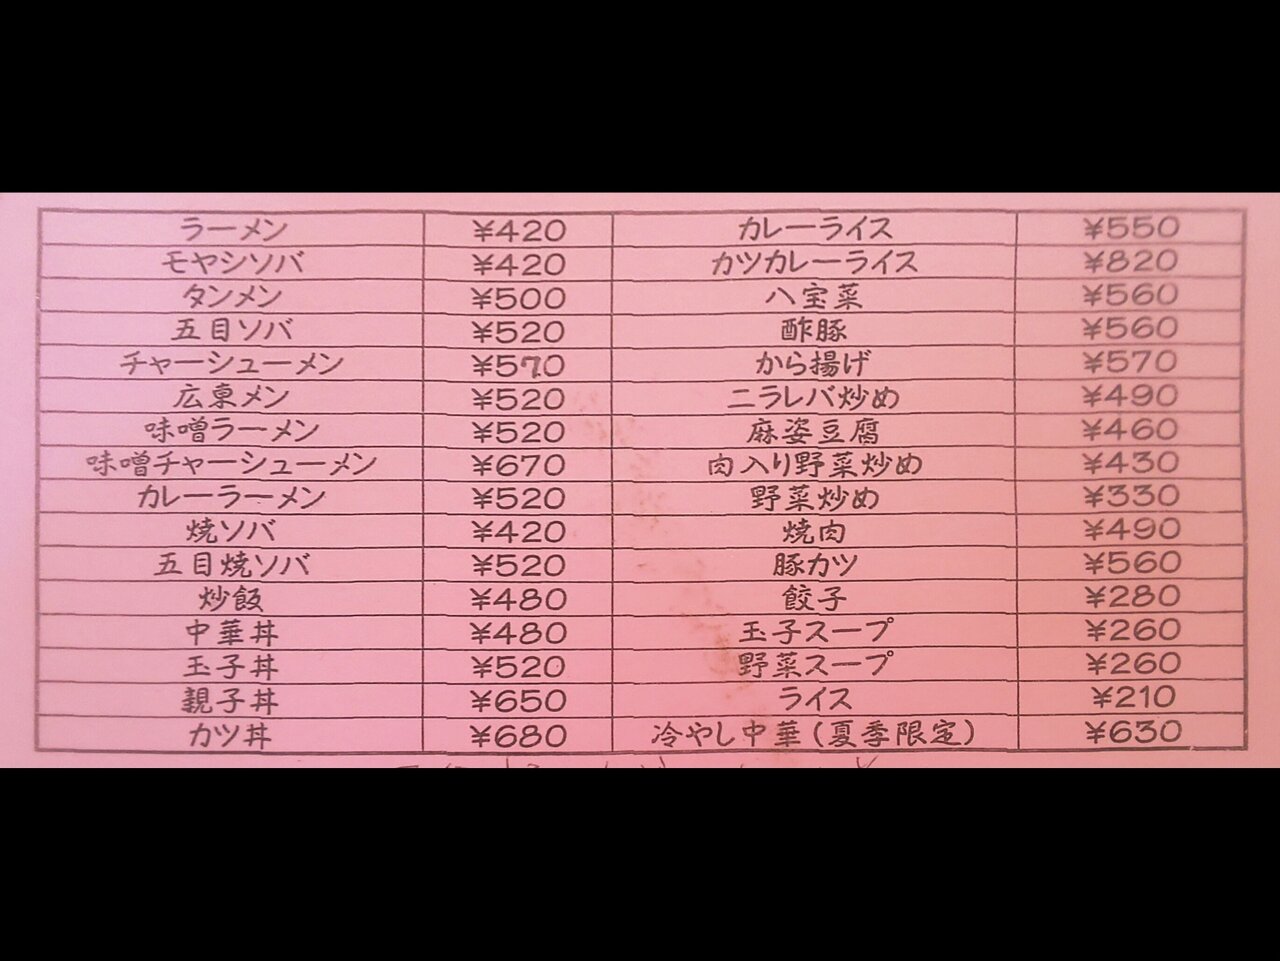 ラーメン ¥420 カレーライス ¥550
モヤシソバ ¥420 カツカレーライス ¥820
タンメン ¥500 八宝菜 ¥560
五目ソバ ¥520 酢豚 ¥560
チャーシューメン ¥570 から揚げ ¥570
広東メン ¥520 ニラレバ炒め ¥490
味噌ラーメン ¥520 麻姿豆腐 ¥460
味噌チャーシューメン ¥670 肉入り野菜炒め ¥430
カレーラーメン ¥520 野菜炒め ¥330
焼ソバ ¥420 焼肉 ¥490
五目焼ソバ ¥520 豚カツ ¥560
炒飯 ¥480 餃子 ¥280
中華丼 ¥480 玉子スープ ¥260
玉子丼 ¥520 野菜スープ ¥260
親子丼 ¥650 ライス ¥210
カツ丼 ¥680 冷やし中華(夏季限定) ¥630